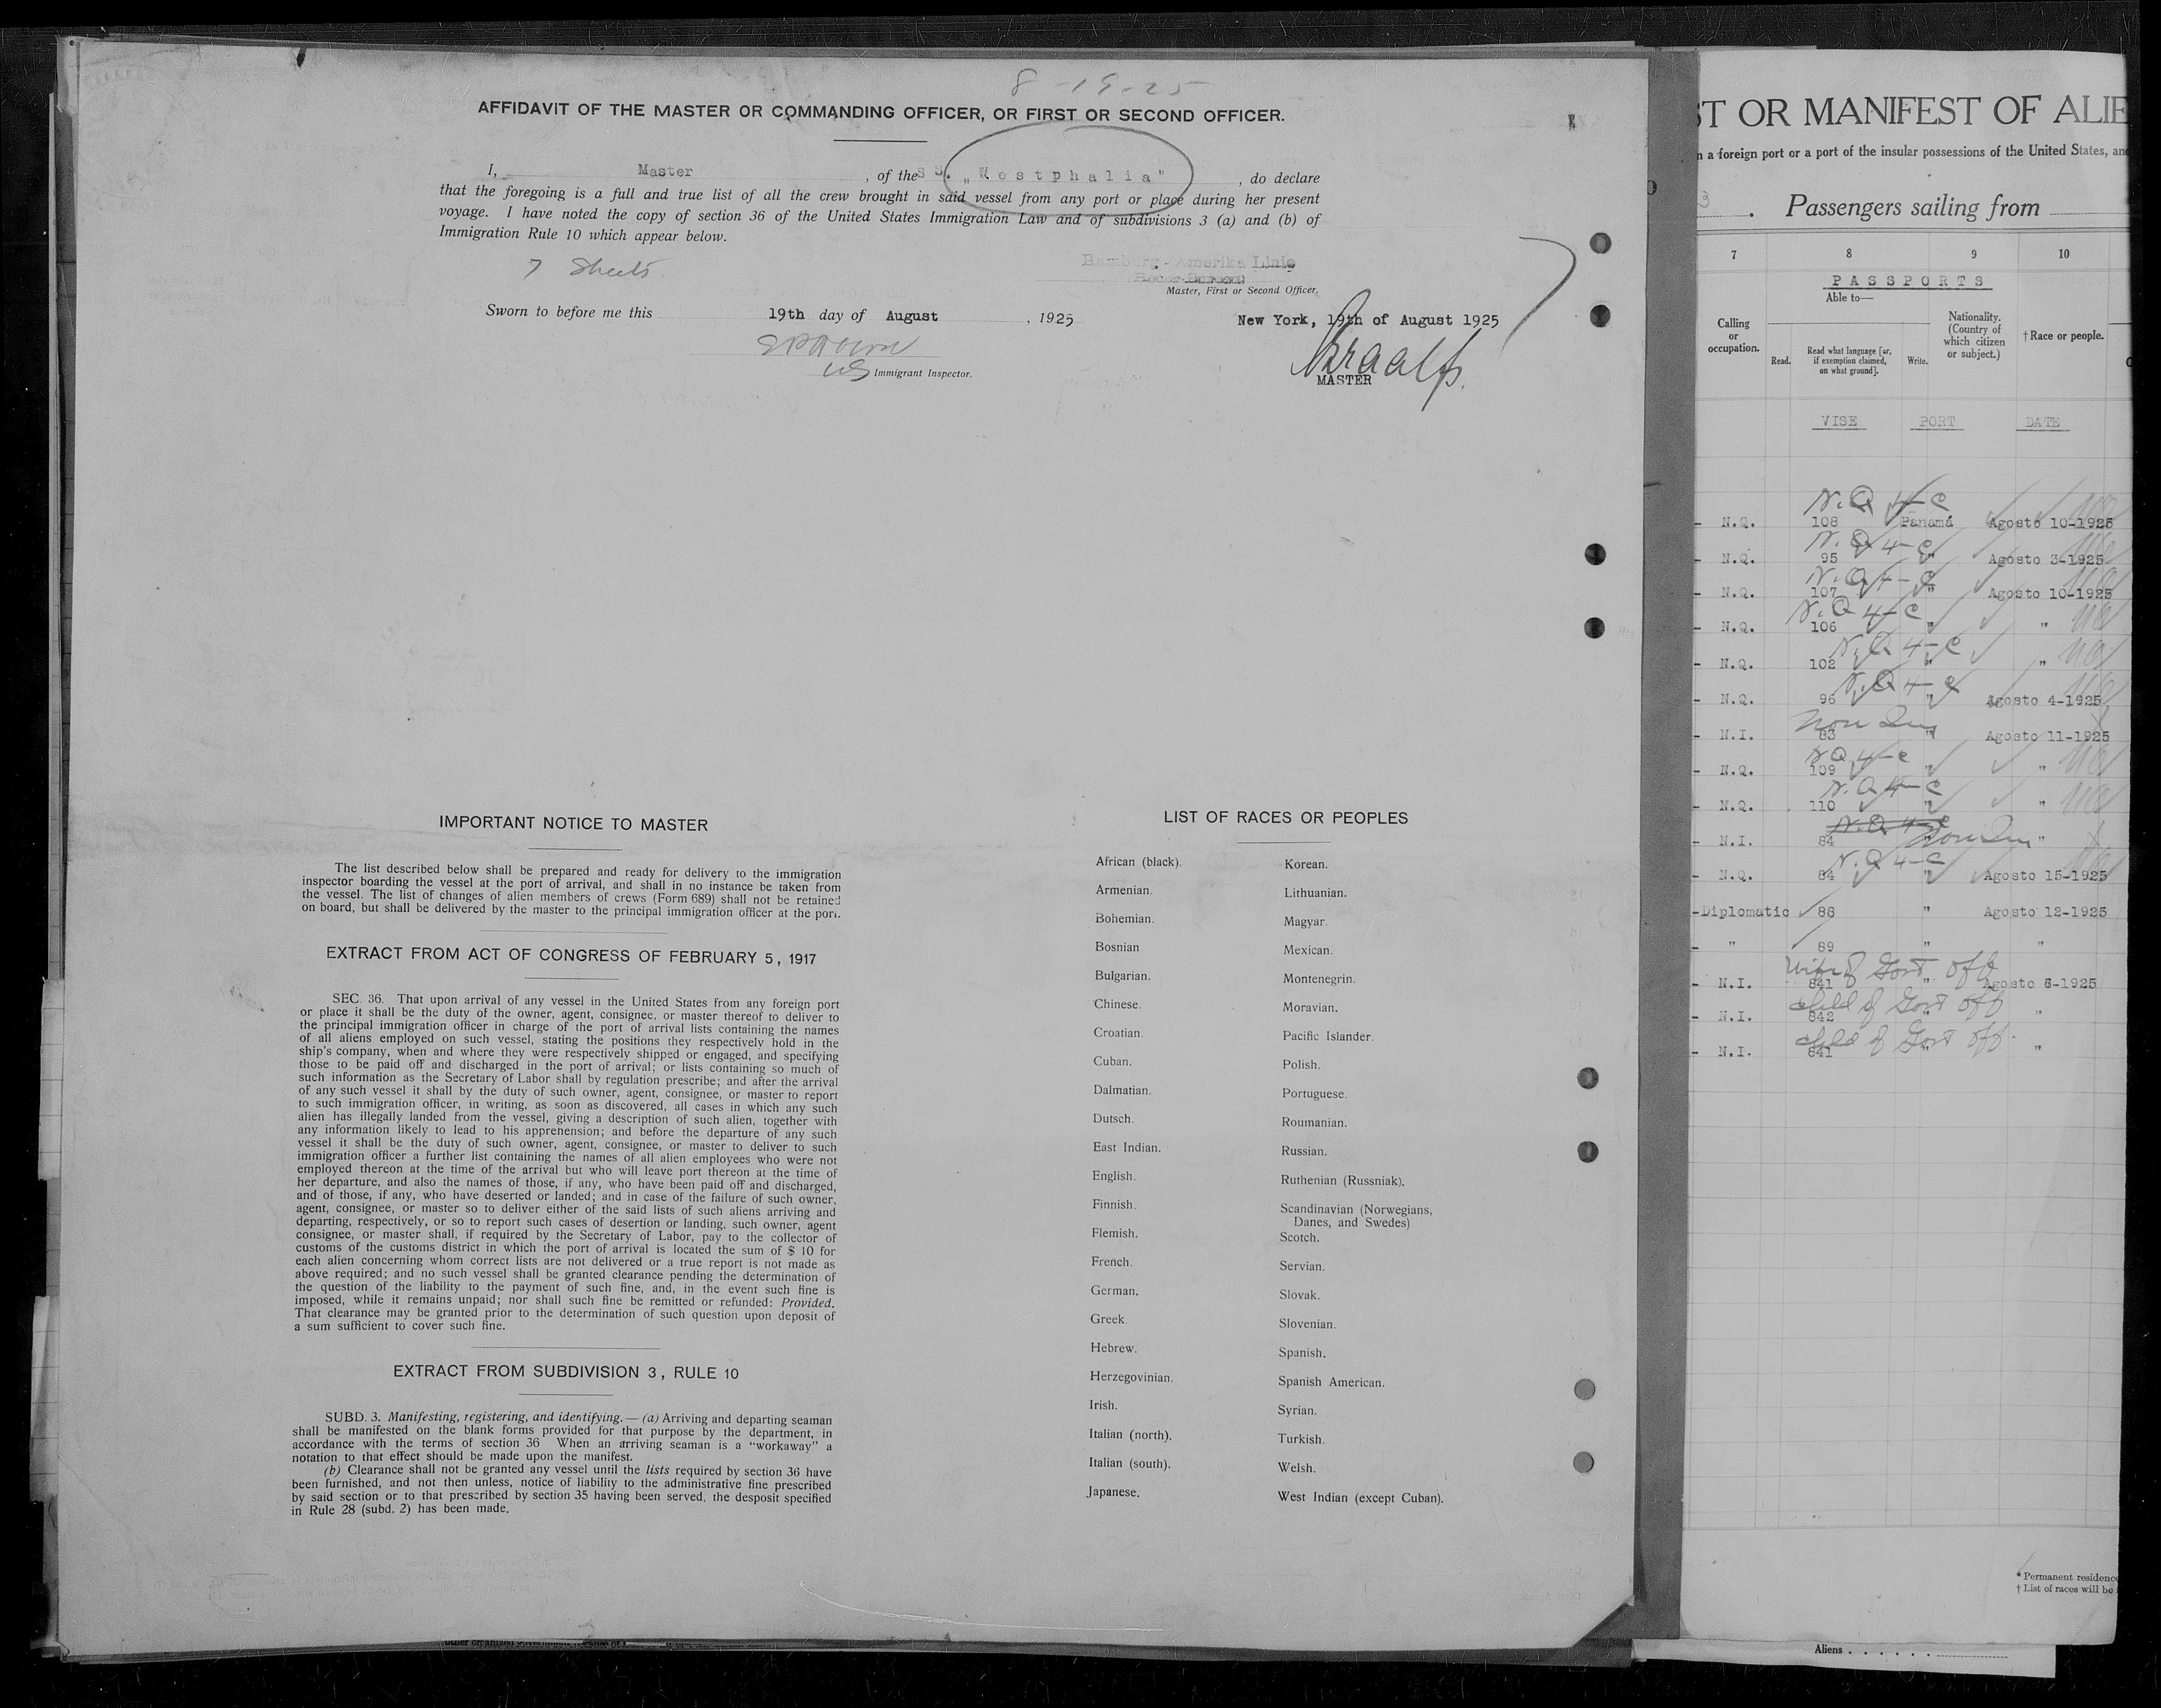 8-19-25
AFFIDAVIT OF THE MASTER OR COMMANDING OFFICER, OR FIRST OR SECOND OFFICER.
I, Master, of the S S. „Westphalia", do declare
that the foregoing is a full and true list of all the crew brought in said vessel from any port or place during her present
voyage. I have noted the copy of section 36 of the United States Immigration Law and of subdivisions 3 (a) and (b) of
Immigration Rule 10 which appear below.
7 Sheets
Hamburg-Amerika Linie
Master, First or Second Officer.
Sworn to before me this 19th day of August, 1925
New York, 19th of August 1925
US Immigrant Inspector.
MASTER
IMPORTANT NOTICE TO MASTER
The list described below shall be prepared and ready for delivery to the immigration
inspector boarding the vessel at the port of arrival, and shall in no instance be taken from
the vessel. The list of changes of alien members of crews (Form 689) shall not be retained
on board, but shall be delivered by the master to the principal immigration officer at the port.
EXTRACT FROM ACT OF CONGRESS OF FEBRUARY 5, 1917
SEC. 36. That upon arrival of any vessel in the United States from any foreign port
or place it shall be the duty of the owner, agent, consignee, or master thereof to deliver to
the principal immigration officer in charge of the port of arrival lists containing the names
of all aliens employed on such vessel, stating the positions they respectively hold in the
ship's company, when and where they were respectively shipped or engaged, and specifying
those to be paid off and discharged in the port of arrival; or lists containing so much of
such information as the Secretary of Labor shall by regulation prescribe; and after the arrival
of any such vessel it shall by the duty of such owner, agent, consignee, or master to report
to such immigration officer, in writing, as soon as discovered, all cases in which any such
alien has illegally landed from the vessel, giving a description of such alien, together with
any information likely to lead to his apprehension; and before the departure of any such
vessel it shall be the duty of such owner, agent, consignee, or master to deliver to such
immigration officer a further list containing the names of all alien employees who were not
employed thereon at the time of the arrival but who will leave port thereon at the time of
her departure, and also the names of those, if any, who have been paid off and discharged,
and of those, if any, who have deserted or landed; and in case of the failure of such owner,
agent, consignee, or master so to deliver either of the said lists of such aliens arriving and
departing, respectively, or so to report such cases of desertion or landing, such owner, agent
consignee, or master shall, if required by the Secretary of Labor, pay to the collector of
customs of the customs district in which the port of arrival is located the sum of $ 10 for
each alien concerning whom correct lists are not delivered or a true report is not made as
above required; and no such vessel shall be granted clearance pending the determination of
the question of the liability to the payment of such fine, and, in the event such fine is
imposed, while it remains unpaid; nor shall such fine be remitted or refunded: Provided.
That clearance may be granted prior to the determination of such question upon deposit of
a sum sufficient to cover such fine.
EXTRACT FROM SUBDIVISION 3, RULE 10
SUBD. 3. Manifesting, registering, and identifying.— (a) Arriving and departing seaman
shall be manifested on the blank forms provided for that purpose by the department, in
accordance with the terms of section 36 When an arriving seaman is a "workaway" a
notation to that effect should be made upon the manifest.
(b) Clearance shall not be granted any vessel until the lists required by section 36 have
been furnished, and not then unless, notice of liability to the administrative fine prescribed
by said section or to that prescribed by section 35 having been served, the desposit specified
in Rule 28 (subd. 2) has been made.
LIST OF RACES OR PEOPLES
African (black).
Armenian.
Bohemian.
Bosnian
Bulgarian.
Chinese.
Croatian.
Cuban.
Dalmatian.
Dutsch.
East Indian.
English.
Finnish.
Flemish.
French.
German.
Greek.
Hebrew.
Herzegovinian.
Irish.
Italian (north).
Italian (south).
Japanese.
Korean.
Lithuanian.
Magyar.
Mexican.
Montenegrin.
Moravian.
Pacific Islander.
Polish.
Portuguese.
Roumanian.
Russian.
Ruthenian (Russniak).
Scandinavian (Norwegians,
Danes, and Swedes)
Scotch.
Servian.
Slovak.
Slovenian.
Spanish.
Spanish American.
Syrian.
Turkish.
Welsh.
West Indian (except Cuban).
ST OR MANIFEST OF ALIE
n a foreign port or a port of the insular possessions of the United States, an
3 . Passengers sailing from
7 8 9 10
PASSPORTS
Able to—
Calling
or
occupation.
Read.
Read what language [or,
if exemption claimed,
on what ground].
Write.
Nationality.
(Country of
which citizen
or subject.)
†Race or people.
VISE PORT DATE
N.Q 4-C
- N.Q. 108 Panamá Agosto 10-1925
N.Q 4-C
- N.Q. 95 " Agosto 3-1925
N.Q 4-C
- N.Q. 107 " Agosto 10-1925
N.Q 4-C
- N.Q. 106 " "
N.Q 4-C
- N.Q. 102 " "
N.Q 4-C
- N.Q. 96 " Agosto 4-1925
Non Im
- N.I. 83 " Agosto 11-1925
N Q 4-C
- N.Q. 109 " "
N.Q 4-C
- N.Q. 110 " "
N.Q 4-C Non Im
- N.I. 84 " "
N.Q 4-C
- N.Q. 84 " Agosto 15-1925
-Diplomatic 88 " Agosto 12-1925
- " 89 " "
Wife of Govt off
- N.I. 841 " Agosto 6-1925
child of Govt off
- N.I. 842 " "
child of Govt off.
- N.I. 841 " "
* Permanent residence
† List of races will be
Aliens . . . . . .